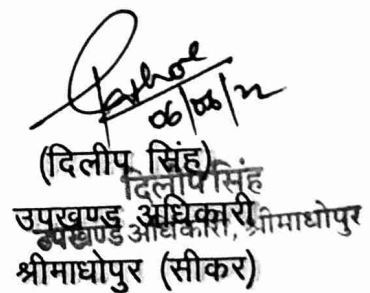 06/06/22
(दिलीप सिंह)
दिलीप सिंह
उपखण्ड अधिकारी
उपखण्ड अधिकारी, श्रीमाधोपुर
श्रीमाधोपुर (सीकर)